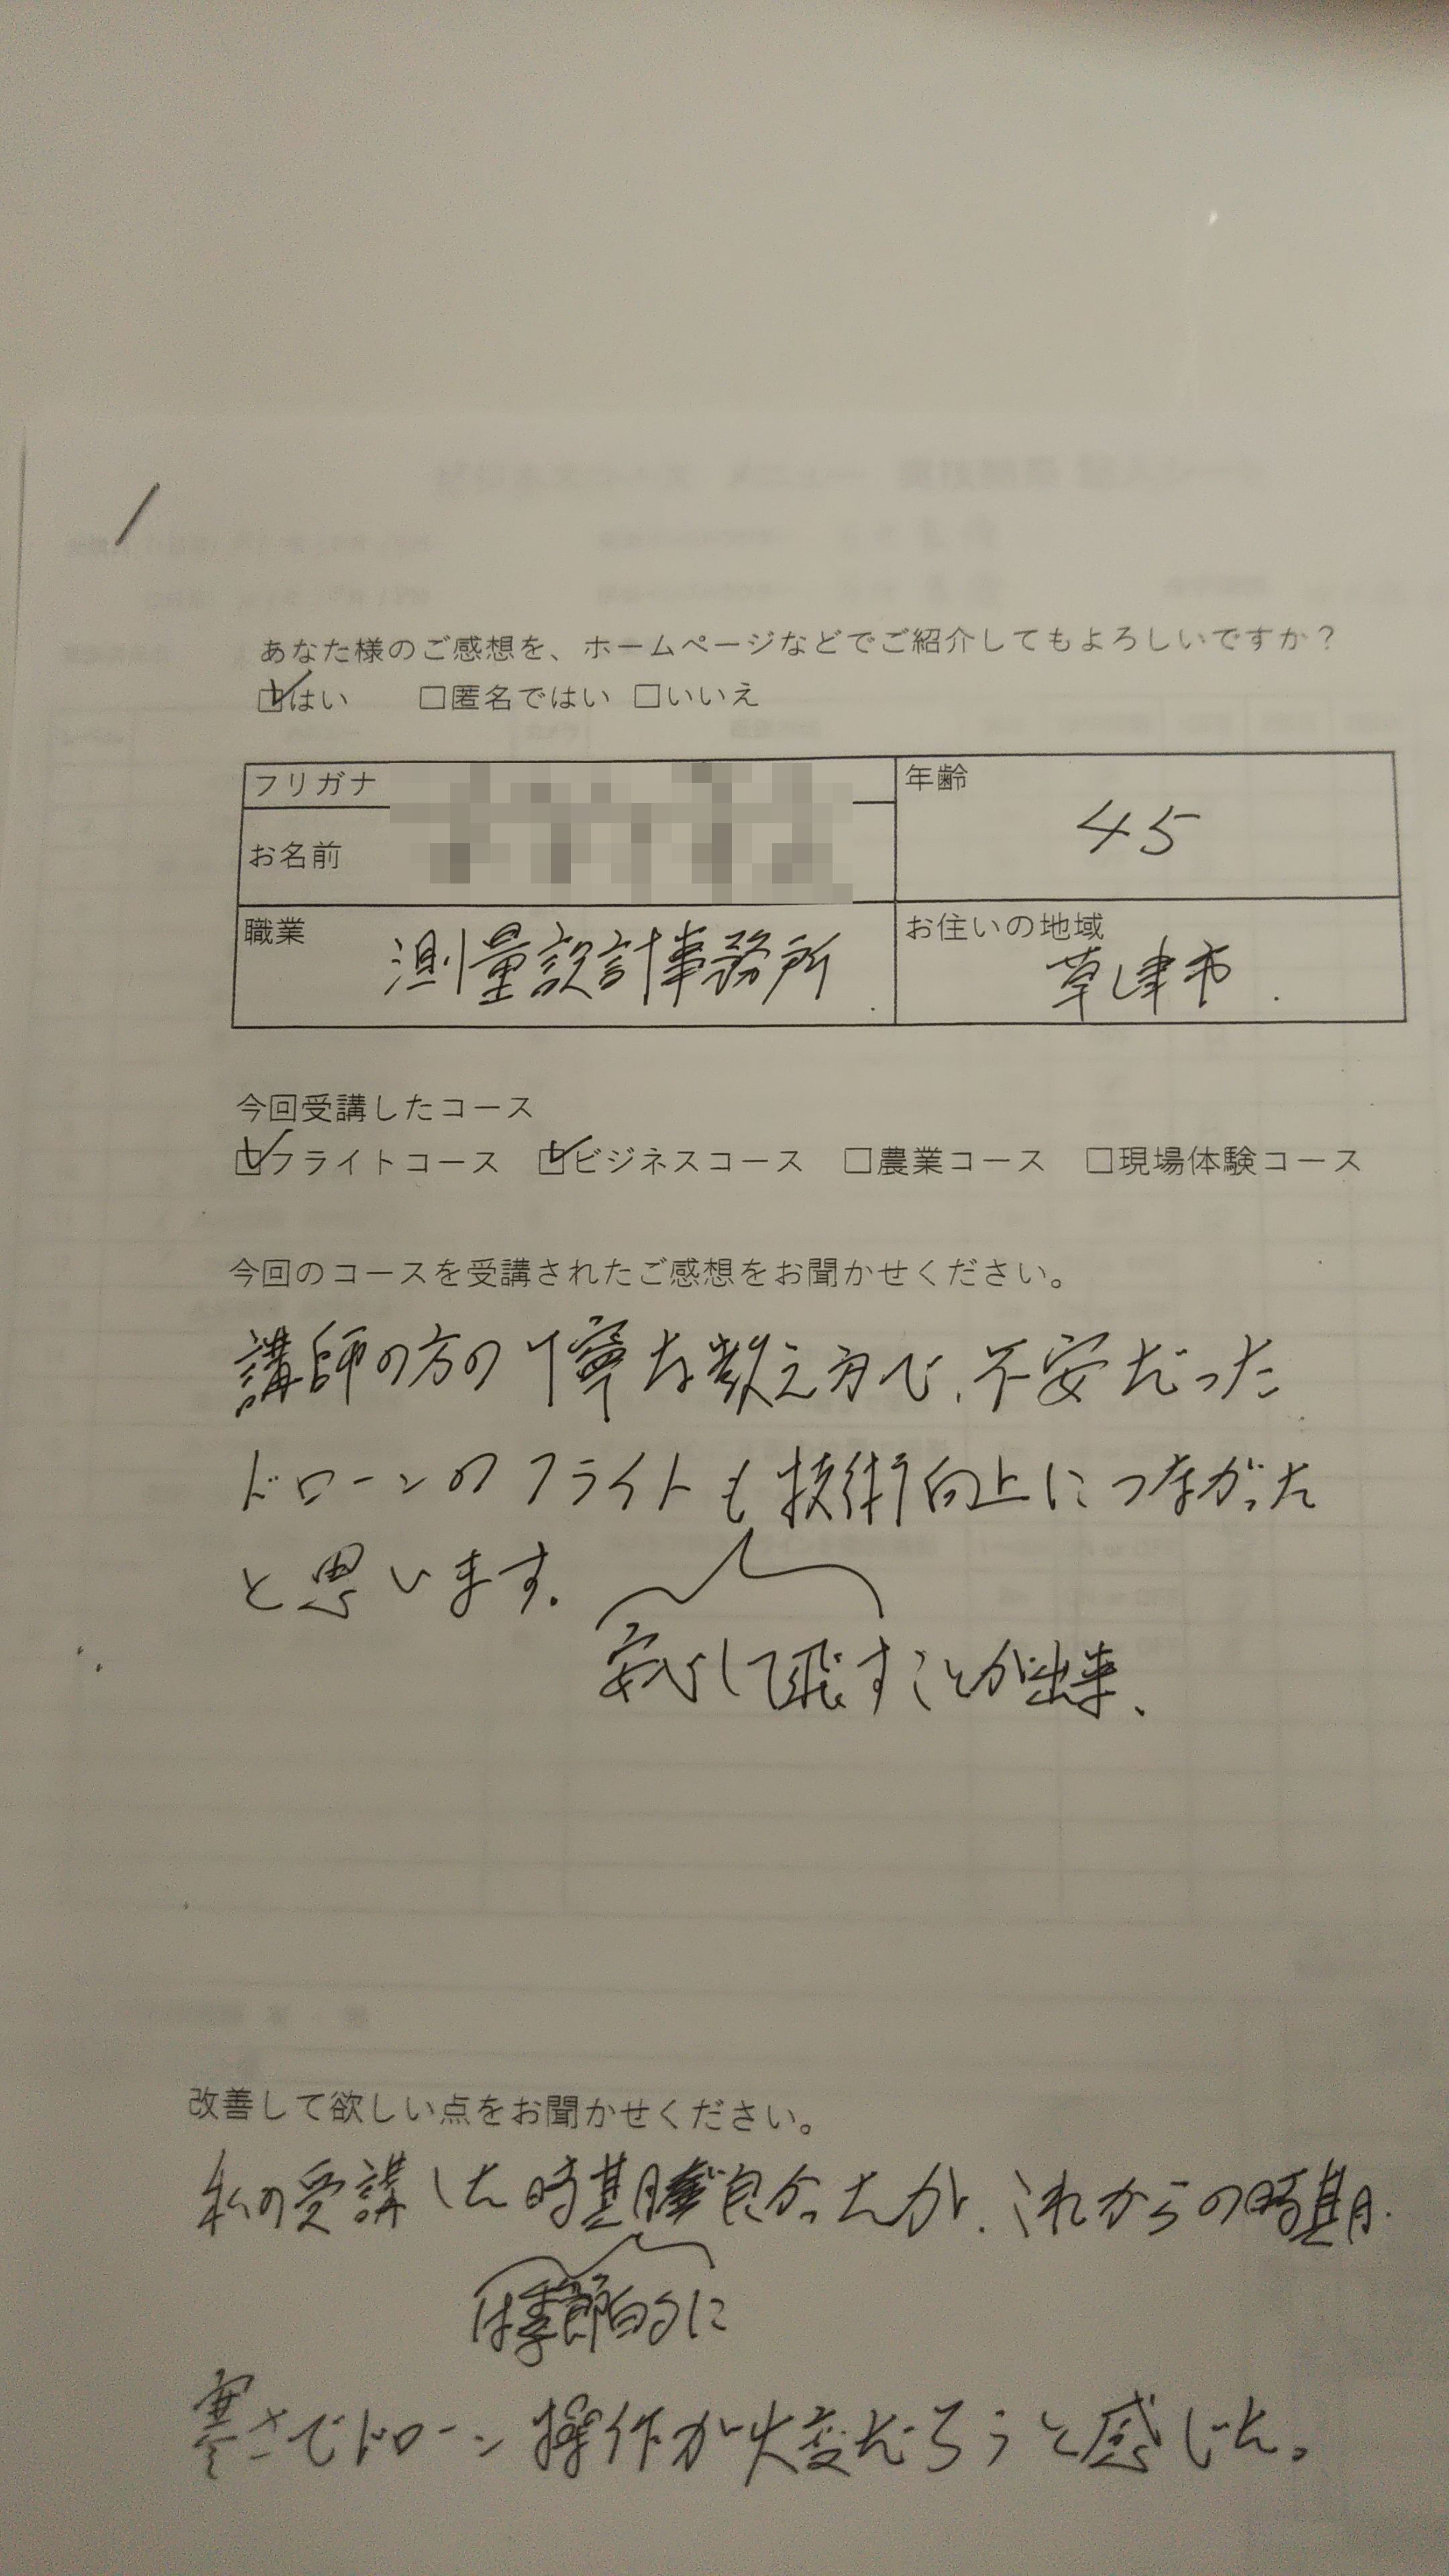 あなた様のご感想を、ホームページなどでご紹介してもよろしいですか？
☑はい □匿名ではい □いいえ
フリガナ
お名前
年齢
45
職業
測量設計事務所
お住いの地域
草津市.
今回受講したコース
☑フライトコース ☑ビジネスコース □農業コース □現場体験コース
今回のコースを受講されたご感想をお聞かせください。
講師の方の丁寧な教え方で、不安だった
ドローンのフライトも技術向上につながった
と思います。
安心して飛すことが出来、
改善して欲しい点をお聞かせください。
私の受講した時期良かったが、これからの時期.
は季節的に
寒さでドローン操作が大変だろうと感じた。